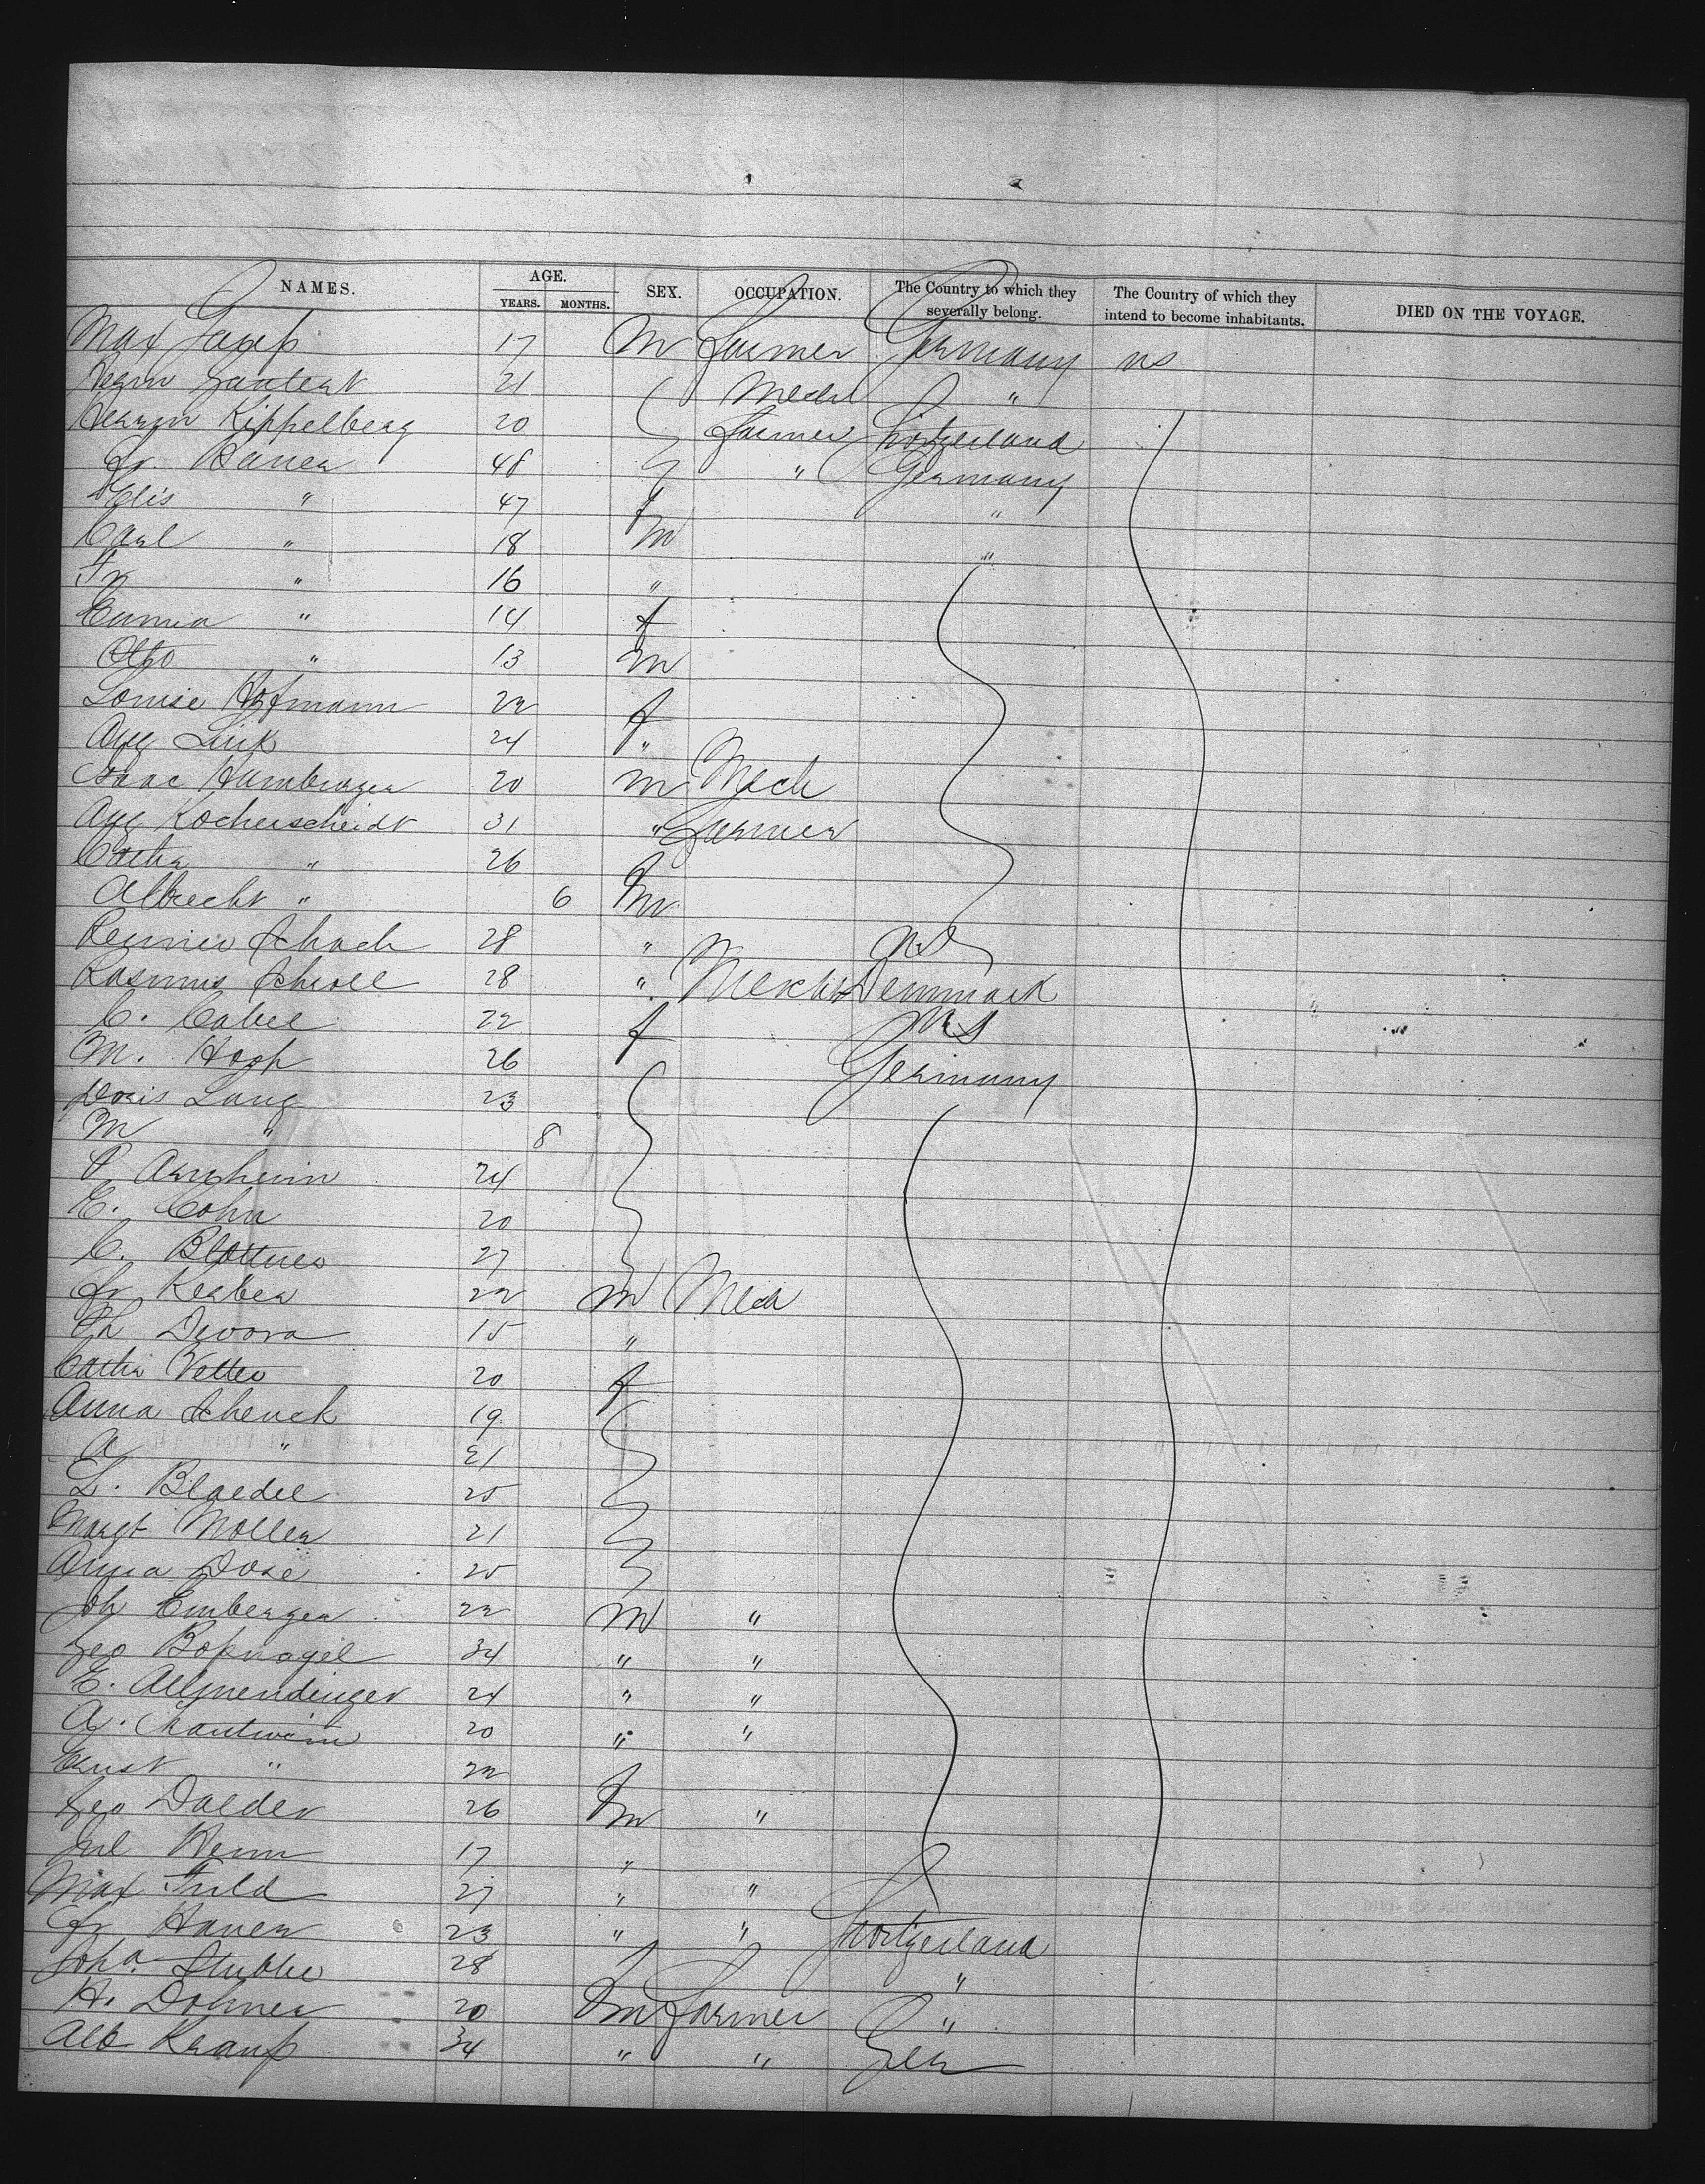 NAMES. AGE. YEARS. MONTHS. SEX. OCCUPATION. The Country to which they severally belong. The Country of which they intend to become inhabitants. DIED ON THE VOYAGE.
Max 17 M Farmer Germany US
21 Mech "
Kippelberg 20 Farmer Switzerland
Fr. Bauer 48 " Germany
Elis " 47 f "
Carl " 18 m "
Fr " 16 "
Emma " 14 f
Otto " 13 m
Louise Hofmann 22 f
Aug Link 24 "
Isaac Hamburger 20 m Mech
Aug Kocherscheidt 31 " Farmer
Catha " 26 f
Albrecht " 6 m
Schach 28 " US
Rasmus 28 " Mercht Denmark
C. 22 f US
M. Hoop 26 Germany
Doris Lang 23
M " 8
24
E. Cohn 20
C. Blattner 27
Fr Kerber 22 m Mech
Ph 15 "
Catha Vetter 20 f
Anna Schenck 19
A " 21
L. Blaedel 25
Margt Moller 21
Anna Dose 25
Joh Emberger 22 M "
Geo 34 " "
E. Allmendinger 24 " "
A. 20 " "
Ernst " 22 f
Geo Daeder 26 m "
Jul 17 "
Max Fuld 27 " "
Fr Hauer 23 " " Switzerland
Joha Stubbe 28 f "
H. Dohmer 20 m Farmer "
Alb Krauß 34 " " Ger